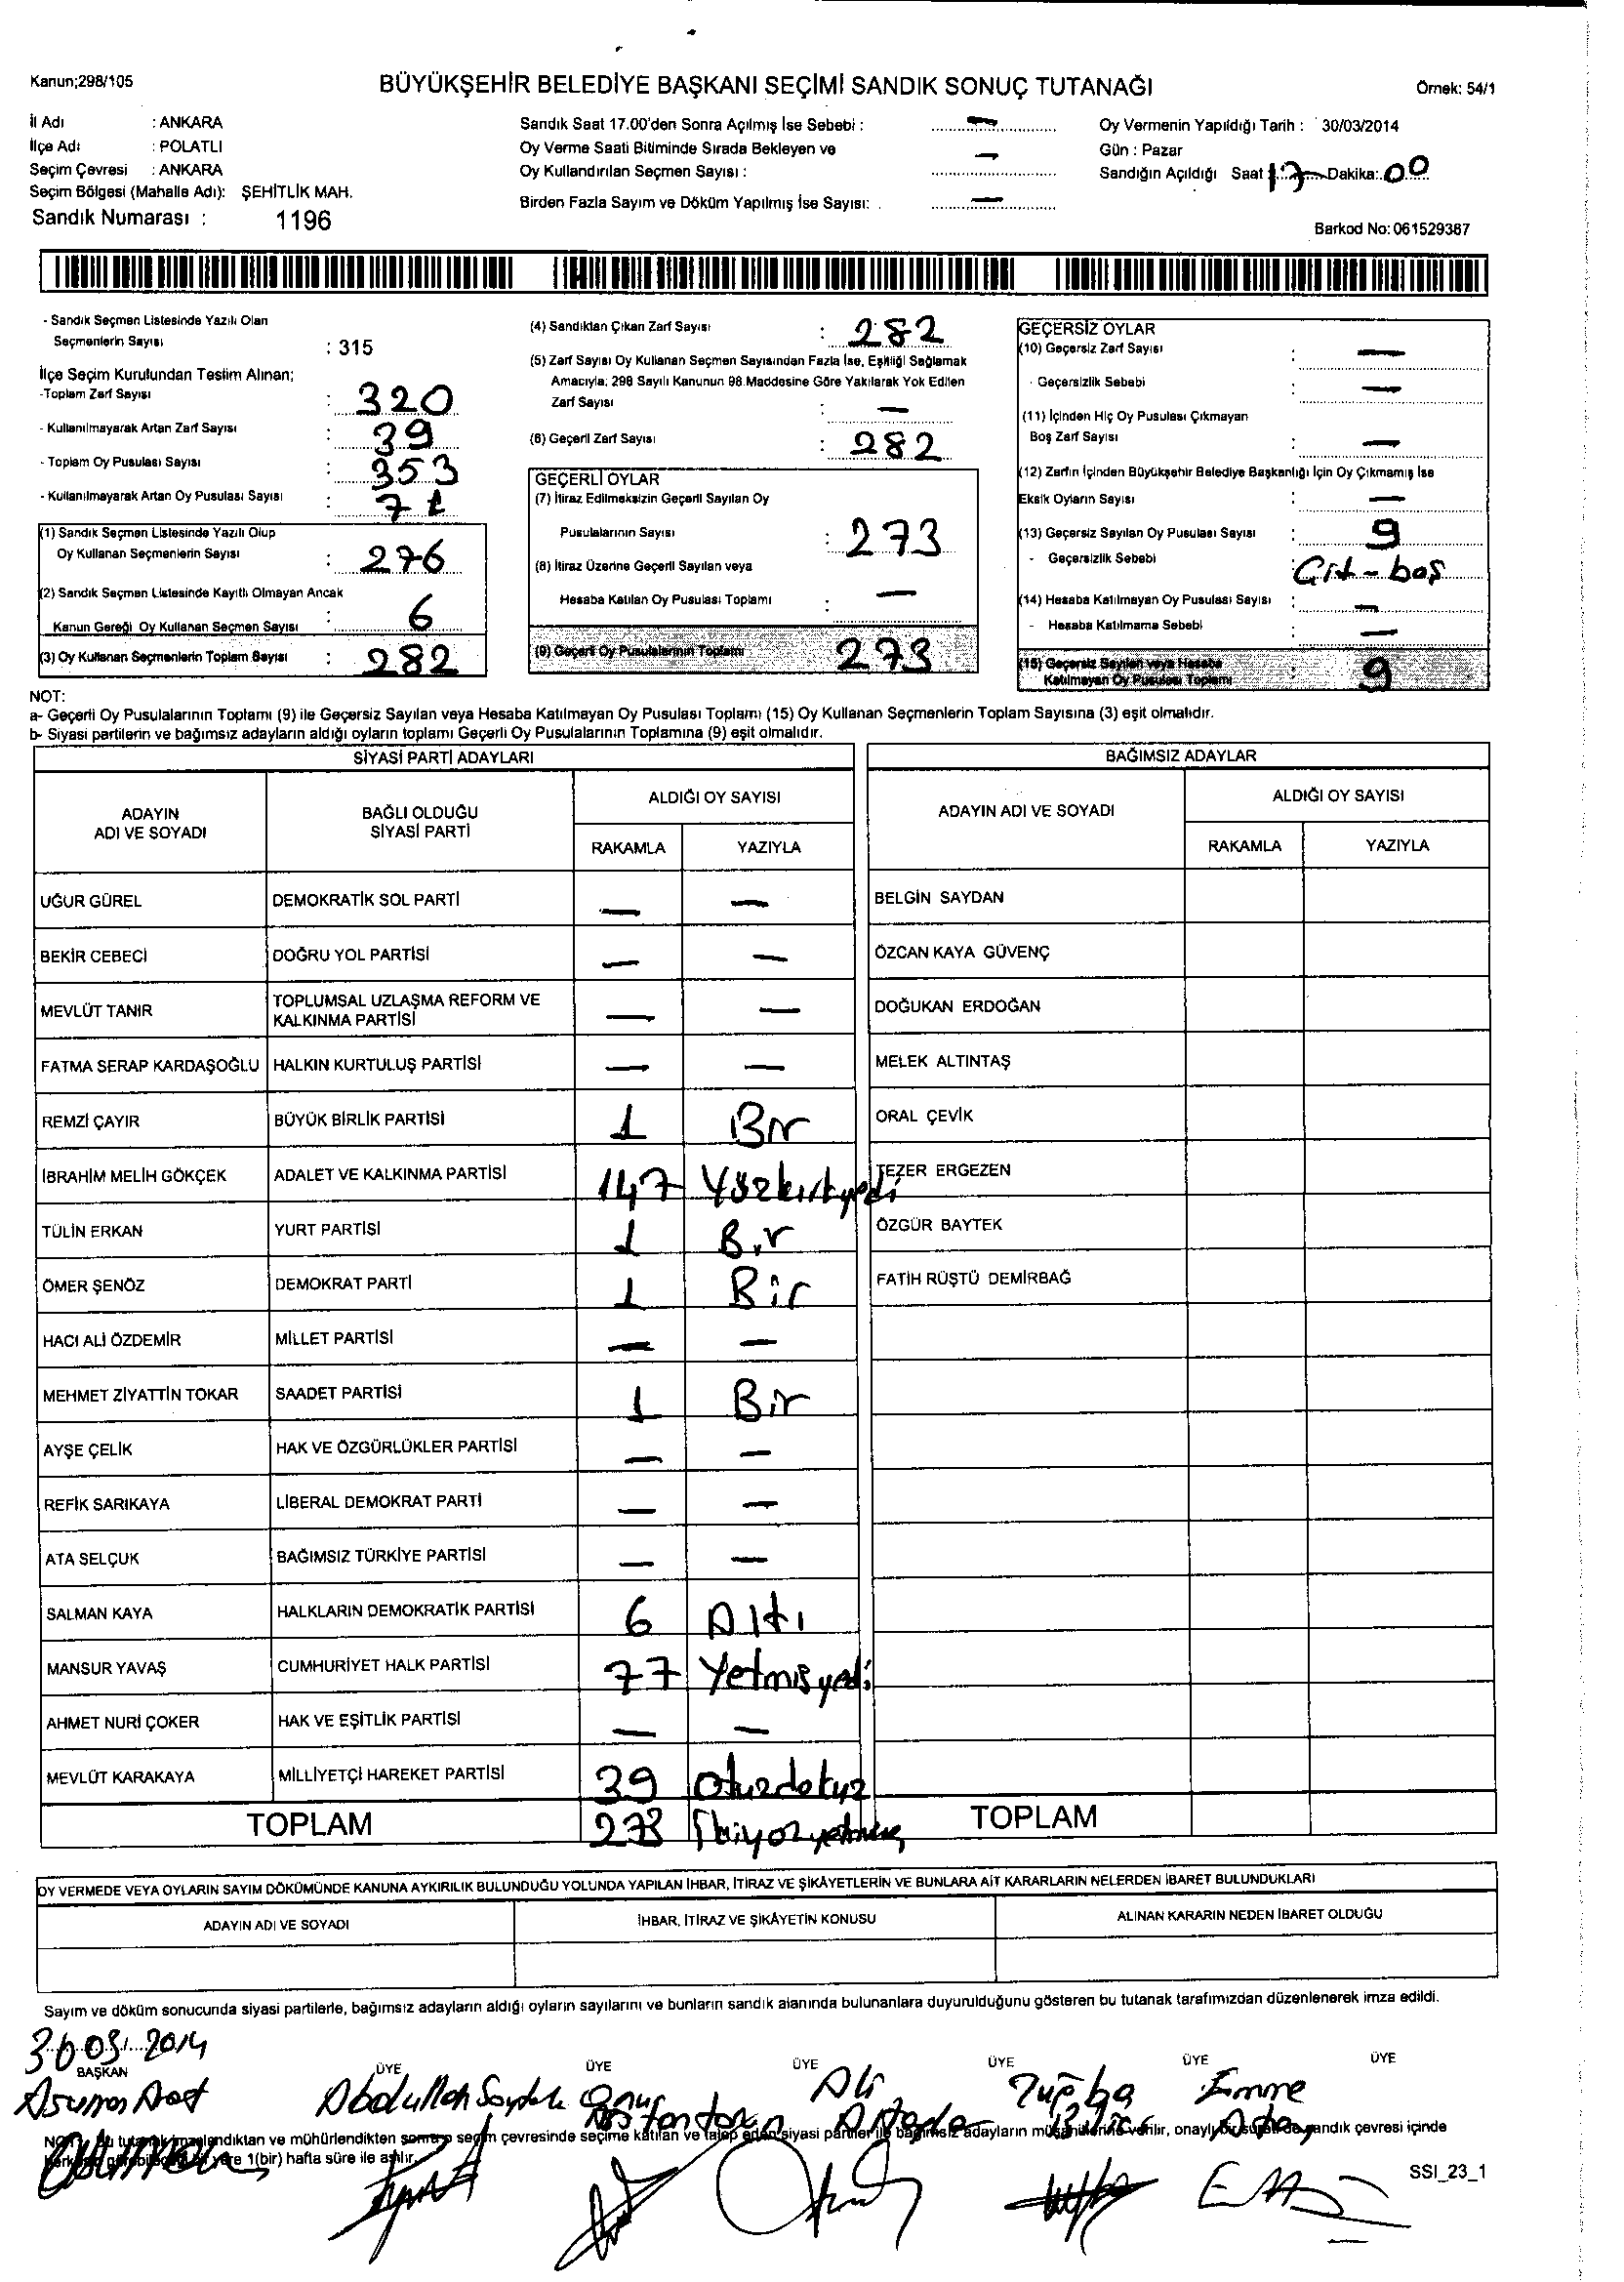 Kanun;298/105
BÜYÜKŞEHİR BELEDİYE BAŞKANI SEÇİMİ SANDIK SONUÇ TUTANAĞI
Örnek: 54/1
İl Adı : ANKARA
İlçe Adı : POLATLI
Seçim Çevresi : ANKARA
Seçim Bölgesi (Mahalle Adı): ŞEHİTLİK MAH.
Sandık Numarası : 1196
Sandık Saat 17.00'den Sonra Açılmış İse Sebebi : —
Oy Verme Saati Bitiminde Sırada Bekleyen ve
Oy Kullandırılan Seçmen Sayısı : —
Birden Fazla Sayım ve Döküm Yapılmış İse Sayısı: —
Oy Vermenin Yapıldığı Tarih : 30/03/2014
Gün : Pazar
Sandığın Açıldığı Saat 17 Dakika: 00
Barkod No: 061529387
- Sandık Seçmen Listesinde Yazılı Olan
Seçmenlerin Sayısı : 315
İlçe Seçim Kurulundan Teslim Alınan;
-Toplam Zarf Sayısı : 320
- Kullanılmayarak Artan Zarf Sayısı : 39
- Toplam Oy Pusulası Sayısı : 353
- Kullanılmayarak Artan Oy Pusulası Sayısı : 71
(1) Sandık Seçmen Listesinde Yazılı Olup
Oy Kullanan Seçmenlerin Sayısı : 276
(2) Sandık Seçmen Listesinde Kayıtlı Olmayan Ancak
Kanun Gereği Oy Kullanan Seçmen Sayısı : 6
(3) Oy Kullanan Seçmenlerin Toplam Sayısı : 282
(4) Sandıktan Çıkan Zarf Sayısı : 282
(5) Zarf Sayısı Oy Kullanan Seçmen Sayısından Fazla İse, Eşitliği Sağlamak
Amacıyla; 298 Sayılı Kanunun 98.Maddesine Göre Yakılarak Yok Edilen
Zarf Sayısı : —
(6) Geçerli Zarf Sayısı : 282
GEÇERLİ OYLAR
(7) İtiraz Edilmeksizin Geçerli Sayılan Oy
Pusulalarının Sayısı : 273
(8) İtiraz Üzerine Geçerli Sayılan veya
Hesaba Katılan Oy Pusulası Toplamı : —
(9) Geçerli Oy Pusulalarının Toplamı 273
GEÇERSİZ OYLAR
(10) Geçersiz Zarf Sayısı : —
- Geçersizlik Sebebi : —
(11) İçinden Hiç Oy Pusulası Çıkmayan
Boş Zarf Sayısı : —
(12) Zarfın İçinden Büyükşehir Belediye Başkanlığı İçin Oy Çıkmamış İse
Eksik Oyların Sayısı : —
(13) Geçersiz Sayılan Oy Pusulası Sayısı : 9
- Geçersizlik Sebebi : Çift-boş
(14) Hesaba Katılmayan Oy Pusulası Sayısı : —
- Hesaba Katılmama Sebebi : —
(15) Geçersiz Sayılan veya Hesaba
Katılmayan Oy Pusulası Toplamı 9
NOT:
a- Geçerli Oy Pusulalarının Toplamı (9) ile Geçersiz Sayılan veya Hesaba Katılmayan Oy Pusulası Toplamı (15) Oy Kullanan Seçmenlerin Toplam Sayısına (3) eşit olmalıdır.
b- Siyasi partilerin ve bağımsız adayların aldığı oyların toplamı Geçerli Oy Pusulalarının Toplamına (9) eşit olmalıdır.
SİYASİ PARTİ ADAYLARI
ADAYIN ADI VE SOYADI BAĞLI OLDUĞU SİYASİ PARTİ ALDIĞI OY SAYISI
RAKAMLA YAZIYLA
UĞUR GÜREL DEMOKRATİK SOL PARTİ — —
BEKİR CEBECİ DOĞRU YOL PARTİSİ — —
MEVLÜT TANIR TOPLUMSAL UZLAŞMA REFORM VE KALKINMA PARTİSİ — —
FATMA SERAP KARDAŞOĞLU HALKIN KURTULUŞ PARTİSİ — —
REMZİ ÇAYIR BÜYÜK BİRLİK PARTİSİ 1 Bir
İBRAHİM MELİH GÖKÇEK ADALET VE KALKINMA PARTİSİ 147 Yüzkırkyedi
TÜLİN ERKAN YURT PARTİSİ 1 Bir
ÖMER ŞENÖZ DEMOKRAT PARTİ 1 Bir
HACI ALİ ÖZDEMİR MİLLET PARTİSİ — —
MEHMET ZİYATTİN TOKAR SAADET PARTİSİ 1 Bir
AYŞE ÇELİK HAK VE ÖZGÜRLÜKLER PARTİSİ — —
REFİK SARIKAYA LİBERAL DEMOKRAT PARTİ — —
ATA SELÇUK BAĞIMSIZ TÜRKİYE PARTİSİ — —
SALMAN KAYA HALKLARIN DEMOKRATİK PARTİSİ 6 Altı
MANSUR YAVAŞ CUMHURİYET HALK PARTİSİ 77 Yetmişyedi
AHMET NURİ ÇOKER HAK VE EŞİTLİK PARTİSİ — —
MEVLÜT KARAKAYA MİLLİYETÇİ HAREKET PARTİSİ 39 Otuzdokuz
TOPLAM 273
BAĞIMSIZ ADAYLAR
ADAYIN ADI VE SOYADI ALDIĞI OY SAYISI
RAKAMLA YAZIYLA
BELGİN SAYDAN
ÖZCAN KAYA GÜVENÇ
DOĞUKAN ERDOĞAN
MELEK ALTINTAŞ
ORAL ÇEVİK
TEZER ERGEZEN
ÖZGÜR BAYTEK
FATİH RÜŞTÜ DEMİRBAĞ
TOPLAM
OY VERMEDE VEYA OYLARIN SAYIM DÖKÜMÜNDE KANUNA AYKIRILIK BULUNDUĞU YOLUNDA YAPILAN İHBAR, İTİRAZ VE ŞİKÂYETLERİN VE BUNLARA AİT KARARLARIN NELERDEN İBARET BULUNDUKLARI
ADAYIN ADI VE SOYADI İHBAR, İTİRAZ VE ŞİKÂYETİN KONUSU ALINAN KARARIN NEDEN İBARET OLDUĞU
Sayım ve döküm sonucunda siyasi partilerle, bağımsız adayların aldığı oyların sayılarını ve bunların sandık alanında bulunanlara duyurulduğunu gösteren bu tutanak tarafımızdan düzenlenerek imza edildi.
30.03.2014
BAŞKAN ÜYE ÜYE ÜYE ÜYE ÜYE ÜYE
Abdullah Onur Ali Tuğba Emine
seçim çevresinde seçime katılan ve talep eden siyasi partiler ile bağımsız adayların verilir, sandık çevresi içinde
1(bir) hafta süre ile asılır.
SSI_23_1